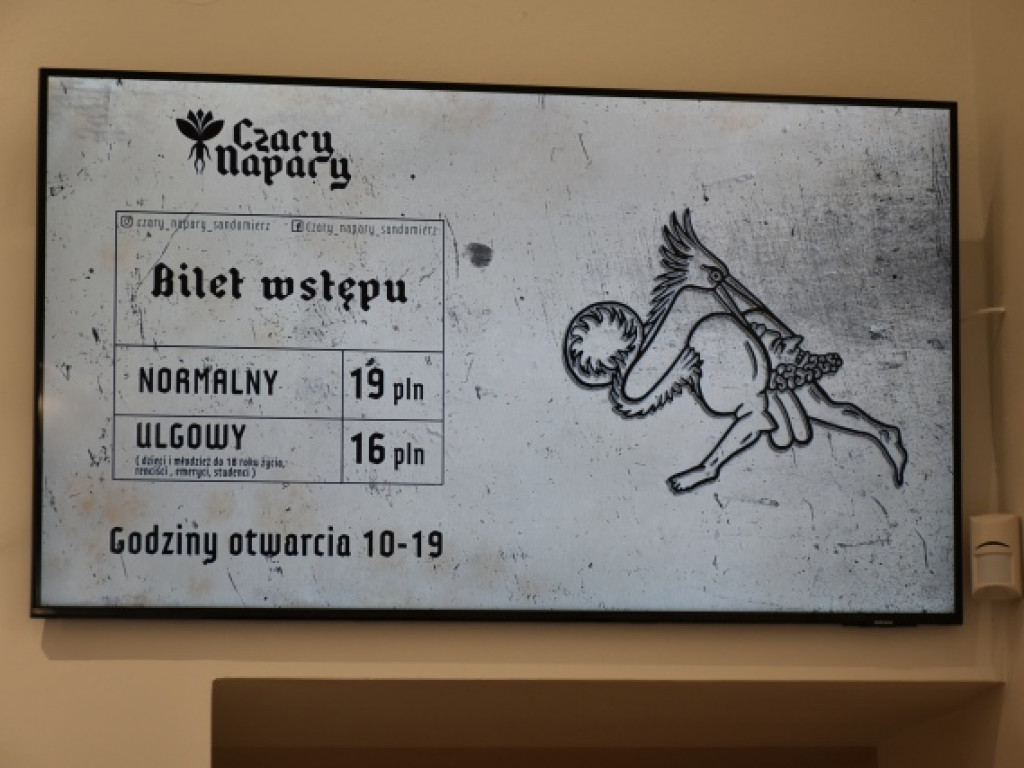 Czary
Napary
czary_napary_sandomierz czary_napary_sandomierz
Bilet wstępu
NORMALNY 19 pln
ULGOWY 16 pln
( dzieci i młodzież do 18 roku życia,
renciści , emeryci, studenci )
Godziny otwarcia 10-19